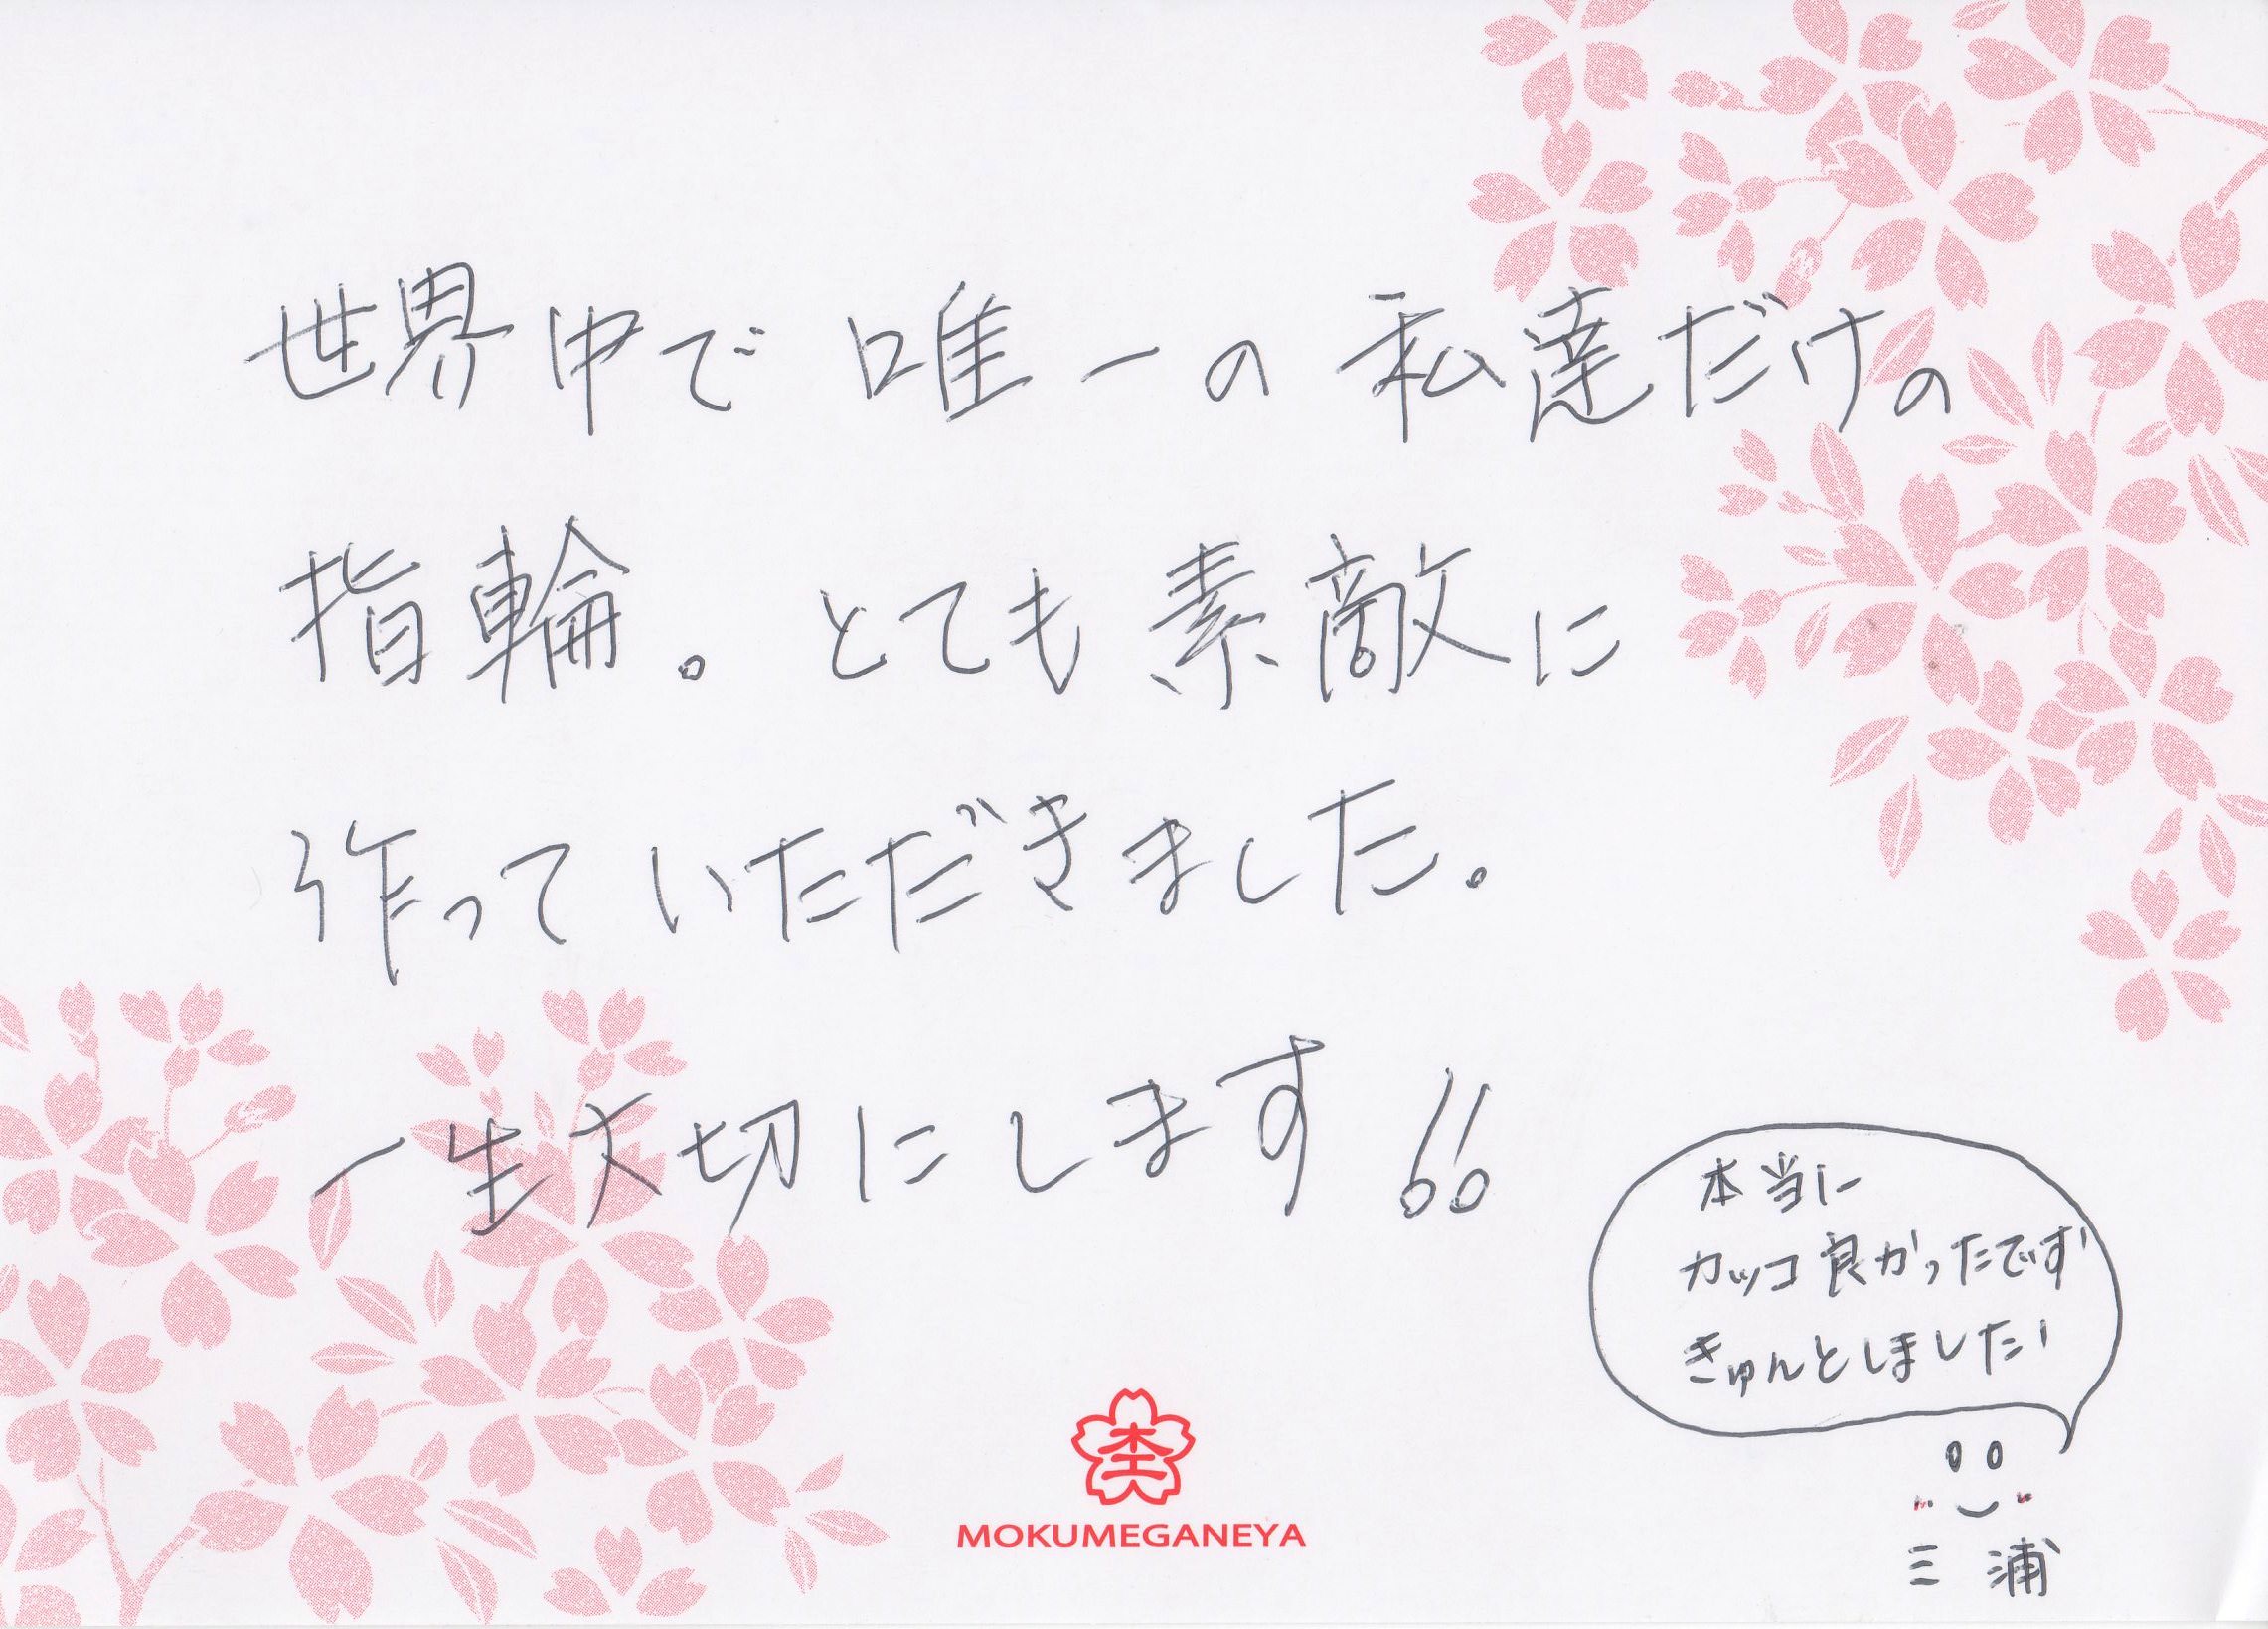 世界中で 唯一の 私達だけの
指輪。とても素敵に
作っていただきました。
一生大切にします!!
本当に
カッコ良かったです!
きゅんとしました!
三浦
MOKUMEGANEYA